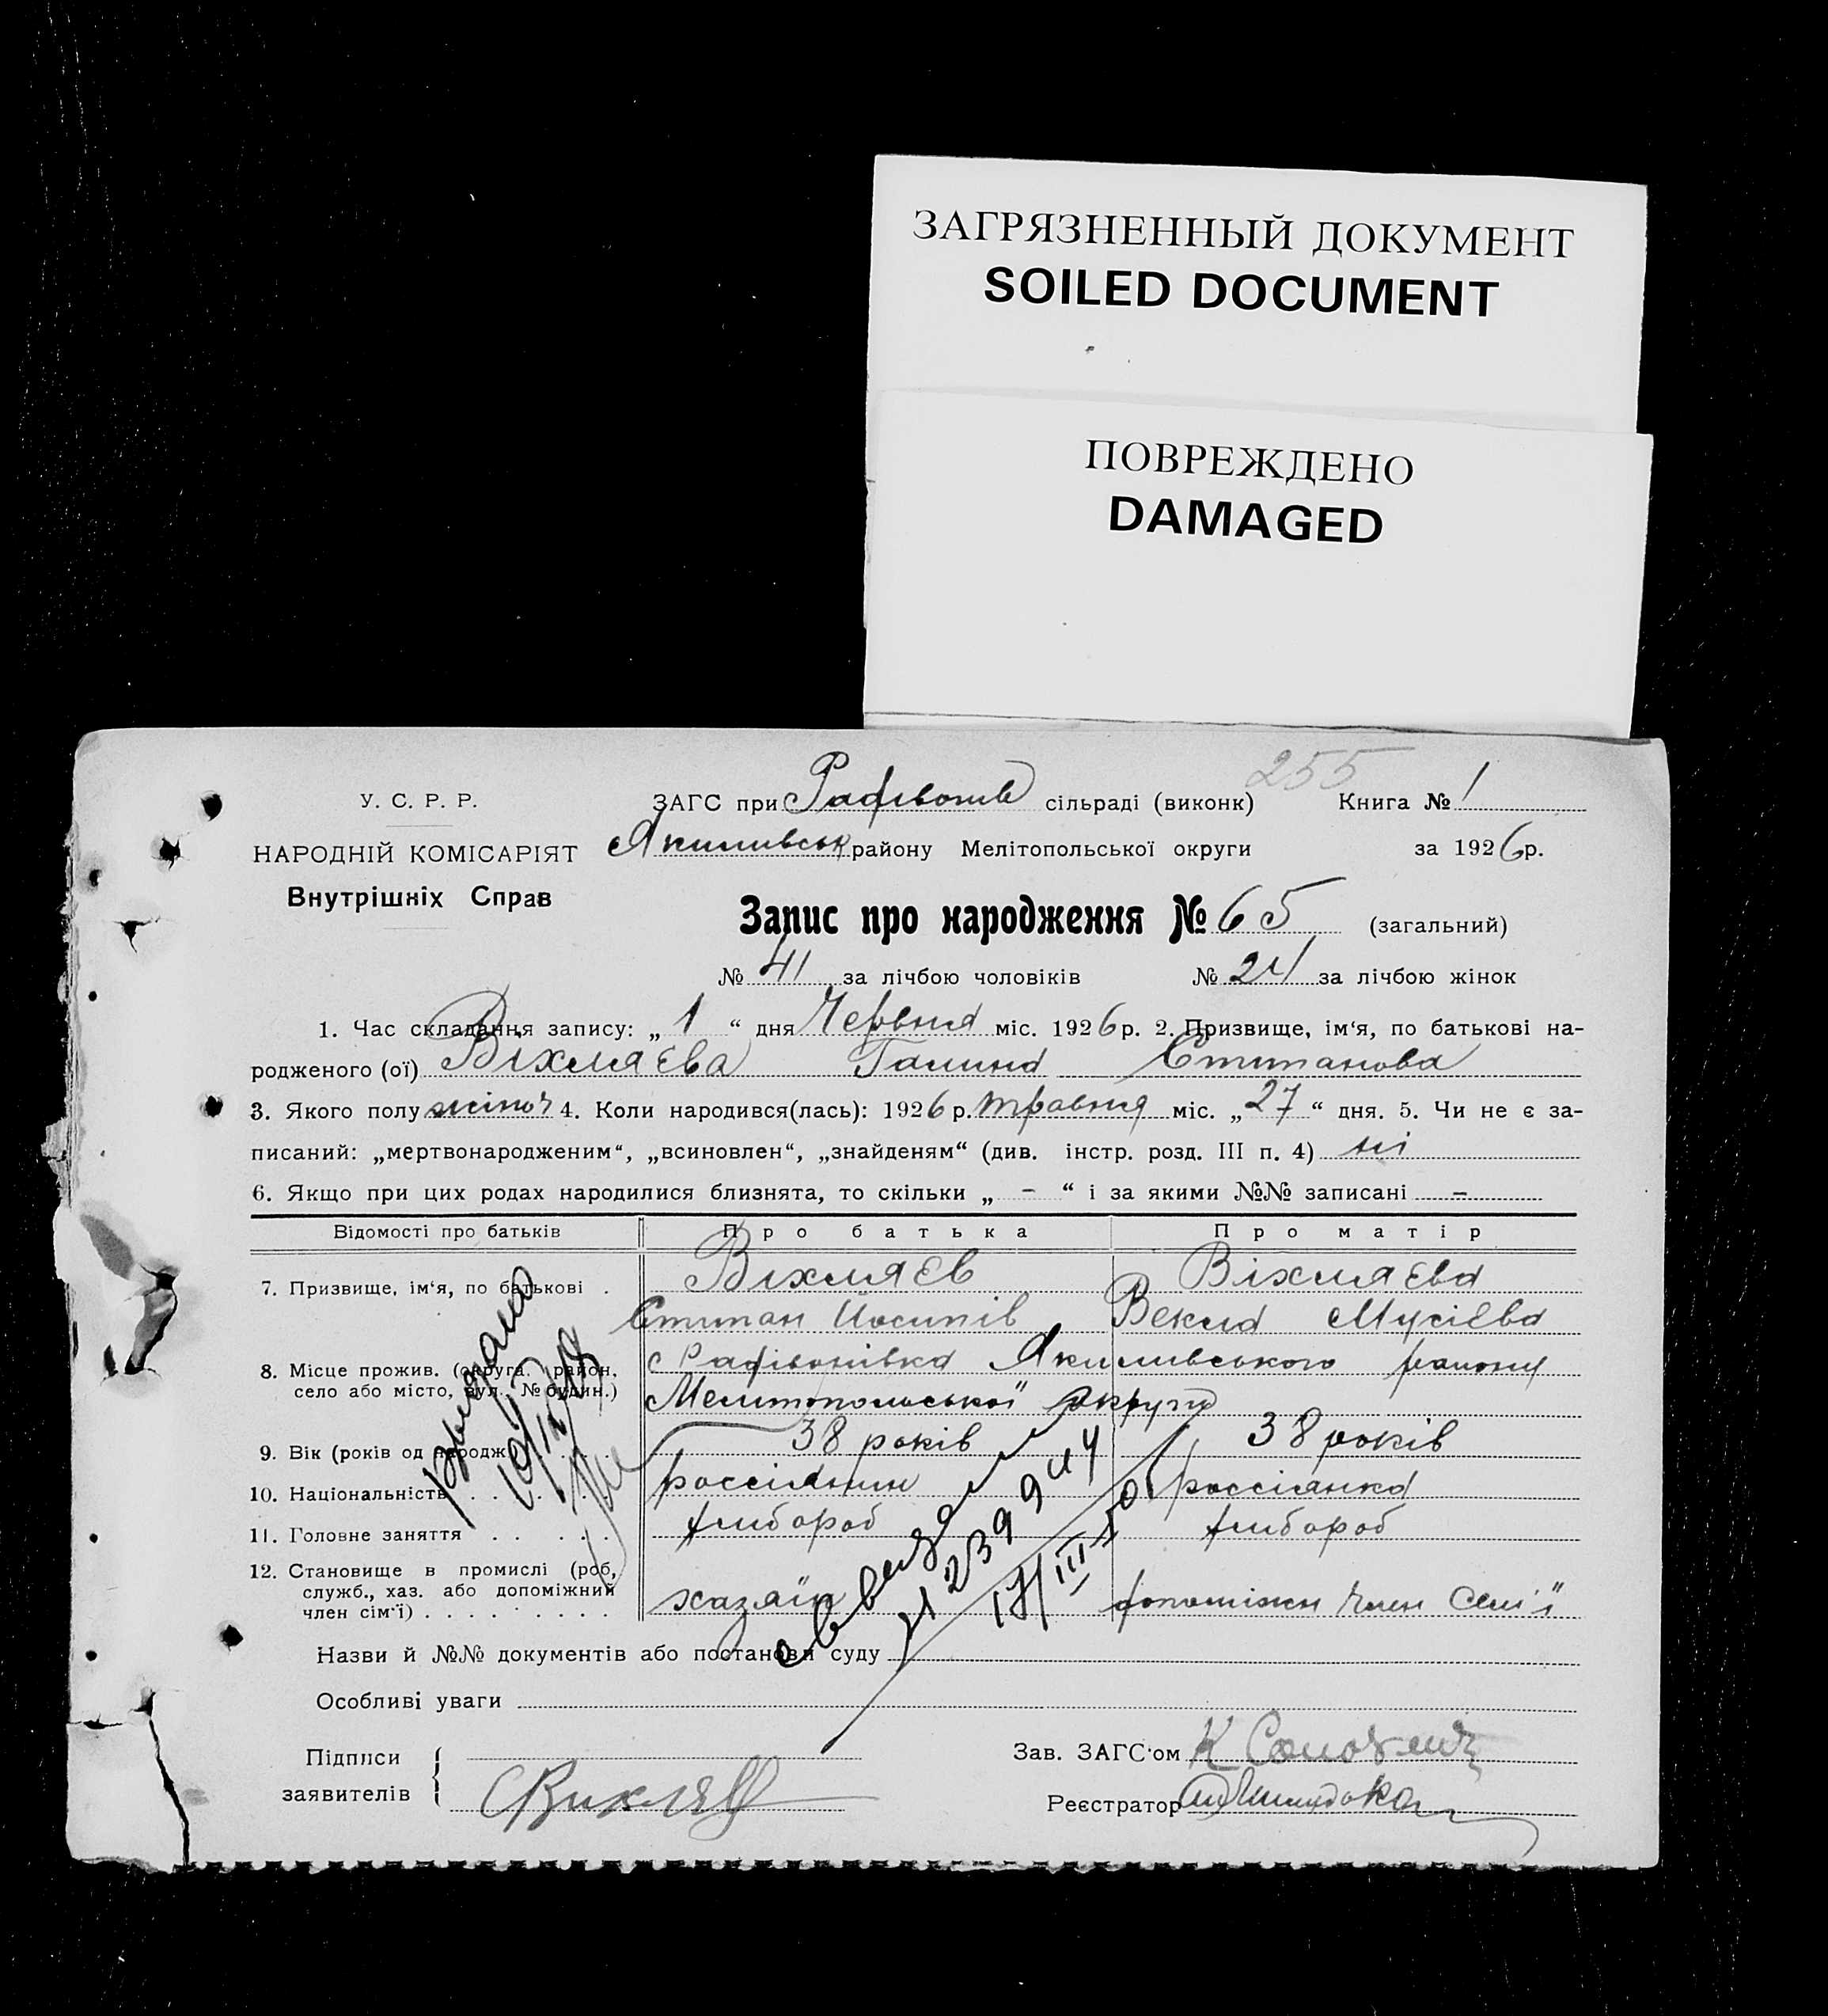 ЗАГРЯЗНЕННЫЙ ДОКУМЕНТ
SOILED DOCUMENT
ПОВРЕЖДЕНО
DAMAGED
255
У. С. Р. Р.
ЗАГС при Радівонів сільраді (виконк) Книга № 1
НАРОДНІЙ КОМІСАРІЯТ
Якимівськ району Мелітопольської округи за 1926 р.
Внутрішніх Справ
Запис про народження № 65 (загальний)
№ 41 за лічбою чоловіків № 24 за лічбою жінок
1. Час складання запису: „ 1 “ дня Червня міс. 1926 р. 2. Призвище, ім‘я, по батькові на-
родженого (ої) Віхляєва Галина Степанова
3. Якого полу жіноч 4. Коли народився(лась): 1926 р. травня міс. „ 27 “ дня. 5. Чи не є за-
писаний: „мертвонародженим“, „всиновлен“, „знайденям“ (див. інстр. розд. III п. 4) ні
6. Якщо при цих родах народилися близнята, то скільки „ - “ і за якими №№ записані -
Відомості про батьків Про батька Про матір
7. Призвище, ім‘я, по батькові . Віхляєв Віхляєва
Степан Йосипів Векла Мусієва
8. Місце прожив. (округа, район, с Радівонівка Якимівського району
село або місто, вул., № будин.) Мелитопольської округи
9. Вік (років од народж 38 років 38 років
10. Національність россіянин россіянка
11. Головне заняття хлібороб хлібороб
12. Становище в промислі (роб,
служб., хаз. або допоміжний
член сім‘ї) хазяїн допоміжн член сем'ї
Видано
Назви й №№ документів або постанови суду
Особливі уваги
Підписи
заявителів СВихляев
Зав. ЗАГС‘ом К
Реєстратор